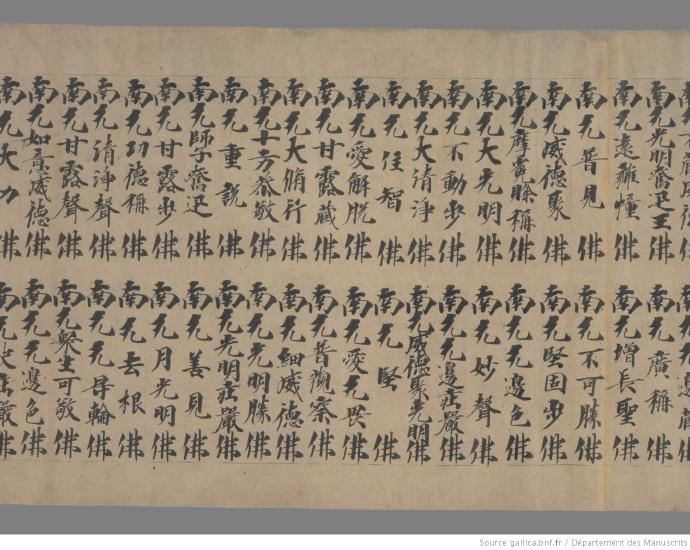 南无光明奮迅王佛 南无廣稱佛
南无遠離憧佛 南无增長聖佛
南无普見佛 南无不可勝佛
南无威德聚佛 南无堅固步佛
南无摩賒稱佛 南无无邊色佛
南无大光明佛 南无妙聲佛
南无不動步佛 南无无邊莊嚴佛
南无大清淨佛 南无威德聚光明佛
南无住智佛 南无堅佛
南无愛解脫佛 南无愛无畏佛
南无甘露藏佛 南无普觀察佛
南无大脩行佛 南无細威德佛
南无十方恭敬佛 南无光明勝佛
南无重說佛 南无光明莊嚴佛
南无師子奮迅佛 南无善見佛
南无甘露步佛 南无月光明佛
南无功德稱佛 南无去根佛
南无清淨聲佛 南无无导輪佛
南无甘露聲佛 南无眾生可敬佛
南无如意威德佛 南无无邊色佛
南无大力佛 南无莊嚴佛
Source gallica.bnf.fr / Département des Manuscrits